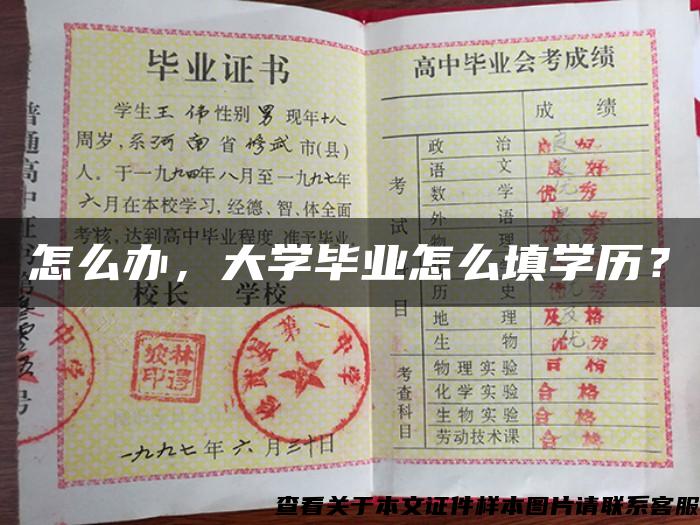 毕业证书
学生王伟性别男现年十八
周岁,系河南省修武市(县)
人。于一九九四年八月至一九九七年
六月在本校学习,经德、智、体全面
考核,达到高中毕业程度,准予毕业
校长 学校
一九九七年六月三十日
高中毕业会考成绩
成 绩
考试 目
政 治 良好
语 文 良好
数 学 优秀
外 语
物 理
历 史 优秀
地 理 及格
生 物 优秀
考查科目
物理实验 合格
化学实验 合格
生物实验 合格
劳动技术课 合格
普通高中证书第 号
修武县第一中学
怎么办,大学毕业怎么填学历?
查看关于本文证件样本图片请联系客服